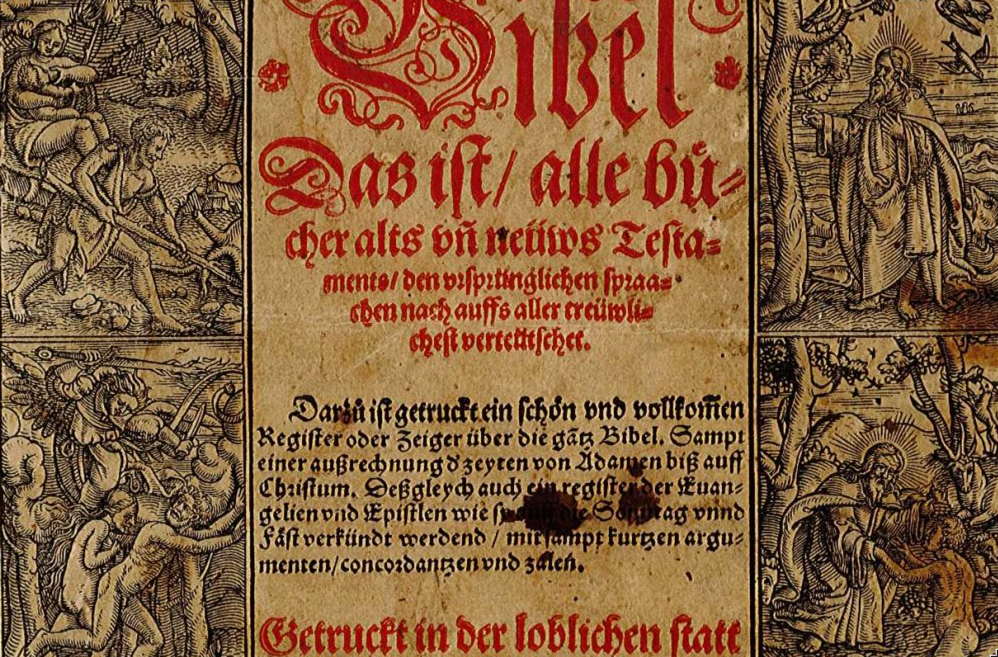 Bibel
Das ist/ alle bü=
cher alts vñ neüws Testa=
ments/ den vrsprünglichen spraa=
chen nach auffs aller treüwli=
chest verteütschet.
Darzů ist getruckt ein schön vnd vollkom̃en
Register oder Zeiger über die gãtz Bibel. Sampt
einer außrechnung d' zeyten von Adamen biß auff
Christum. Deßgleych auch ein register der Euan-
gelien vnd Epistlen wie die Sonntag vnnd
Fäst verkündt werdend / mit sampt kurtzen argu-
menten/ concordantzen vnd zalen.
Getruckt in der loblichen statt